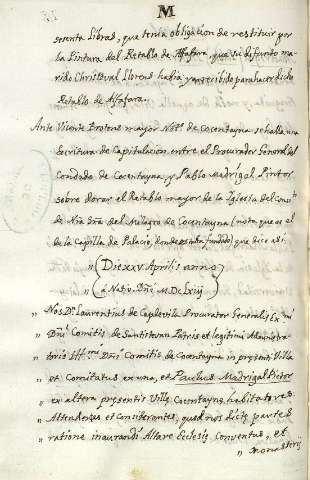 M
setenta Libras, que tenia obligacion de restituir por
la Pintura del Retablo de Alfafara, que su difunto ma-
rido Christoval Llorens habia ya recibido para hacer dicho
Retablo de Alfafara.
Ante Vicente Brotons mayor Notº. de Cocentayna se halla una
Escritura de Capitulacion entre el Procurador General del
Condado de Cocentayna, y Pablo Madrigal Pintor
sobre dorar el Retablo mayor de la Iglesia del Convto
de Nra Sra del Milagro de Cocentayna (nota que es el
de la Capilla de Palacio, donde estaba fundado) que dice asi.
" Die xxv Aprilis anno
" a Nativ. Dñi M.DC.Lxiij
" Nos Dr. Laurentius de Capdevila Procurator Generalis Exmi
" Dñi Comitis de Santistevan Patris et legitimi Administra-
" toris Illmi. Dñi Comitis de Cocentayna in presenti Villa
" et Comitatus ex una, et Paulus Madrigal Pictor
" ex altera presentis Ville Cocentayne habitatores.
" Attendentes et considerantes, quod nos dicte partes
" ratione inaurandi Altare Ecclesie Conventus, et
" Monasterij